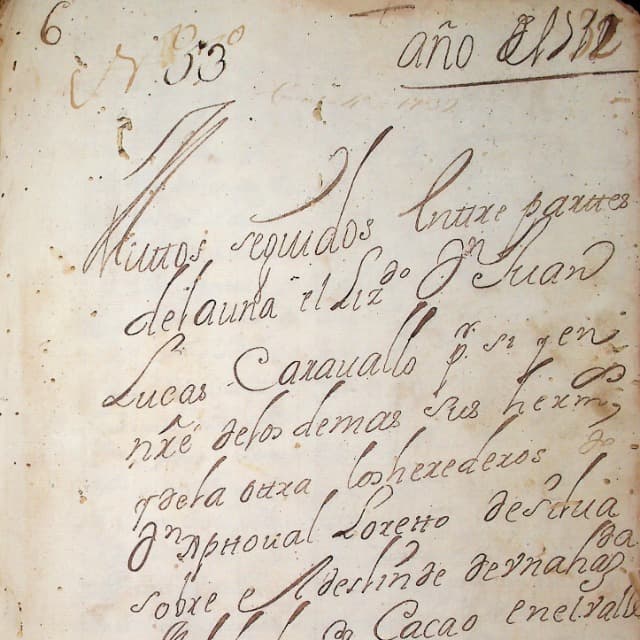 6
Nº 53
año
Auttos seguidos Enttre parttes
de la una el Lizdo Dn Juan
Lucas Carauallo pr si y en
nre de los demas sus hermos
y de la ottra los herederos de
Dn Xpttoual Loretto de Silua
sobre el deslinde de vna hazda
de Cacao en el valle